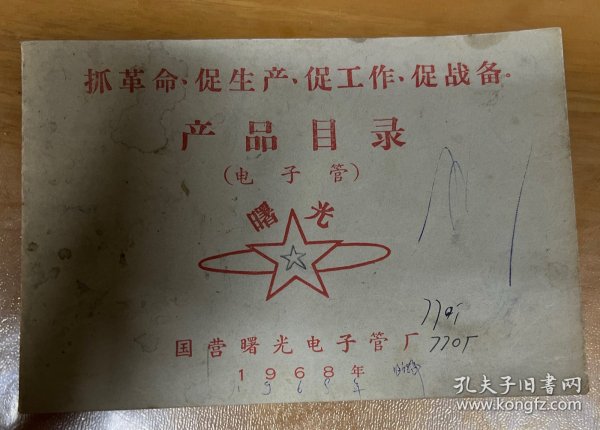 抓革命、促生产、促工作、促战备.
产品目录
(电子管)
曙光
7705
国营曙光电子管厂
1968年
1968年
孔夫子旧书网
www.kongfz.com